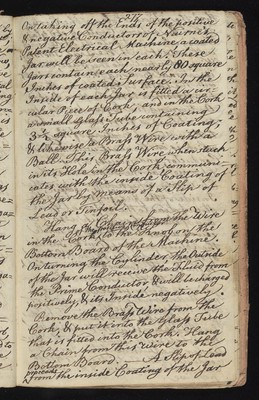 Ex. 4th
On taking off the Ends of the positive
& negative Conductors of Nairne's
Patent Electrical Machine, a coated
Jar will be seen in each. These
Jars contain each nearly 80 square
Inches of coated Surface. In the
Inside of each Jar is fitted a cir-
cular Piece of Cork, and in the Cork
a small Glass Tube containing
3 square Inches of Coating,
& likewise a Brass Wire with a
Ball. This Brass Wire when stuck
in its Hole in the Cork communi-
cates with the Inside Coating of
the Jar by means of a Slip of
Lead or Tinfoil.
Hang a Chain from the Wire
in the Cork to the on the
Bottom Board of the Machine.
On turning the Cylinder, the Outside
of the Jar will receive the Fluid from
the Prime Conductor, & will be charged
positively, & its Inside negatively.
Remove the Brass Wire from the
Cork, & put it into the Glass Tube
that is fitted into the Cork. Hang
a Chain from this Wire to the
Bottom Board. A Slip of Lead
proceeds
from the inside Coating of the Jar